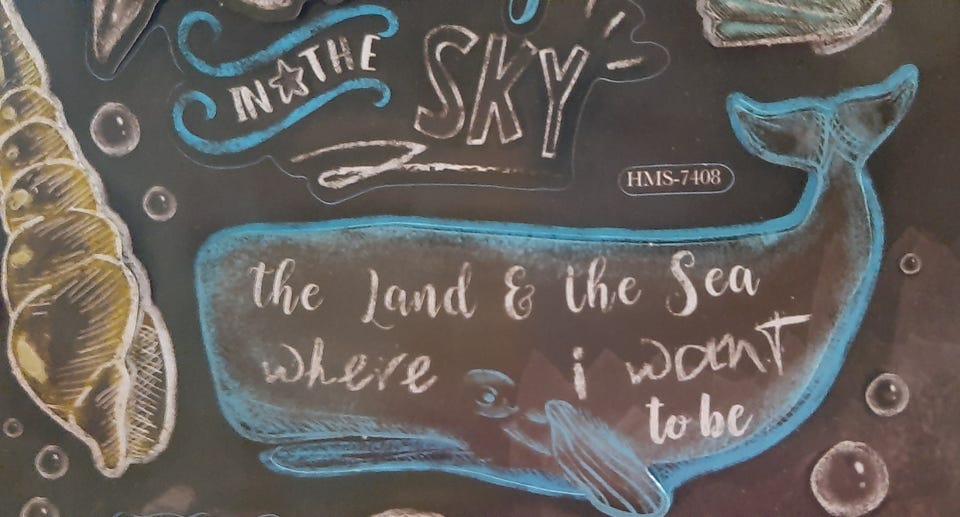 IN THE
SKY
HMS-7408
the Land & the Sea
where i want
to be